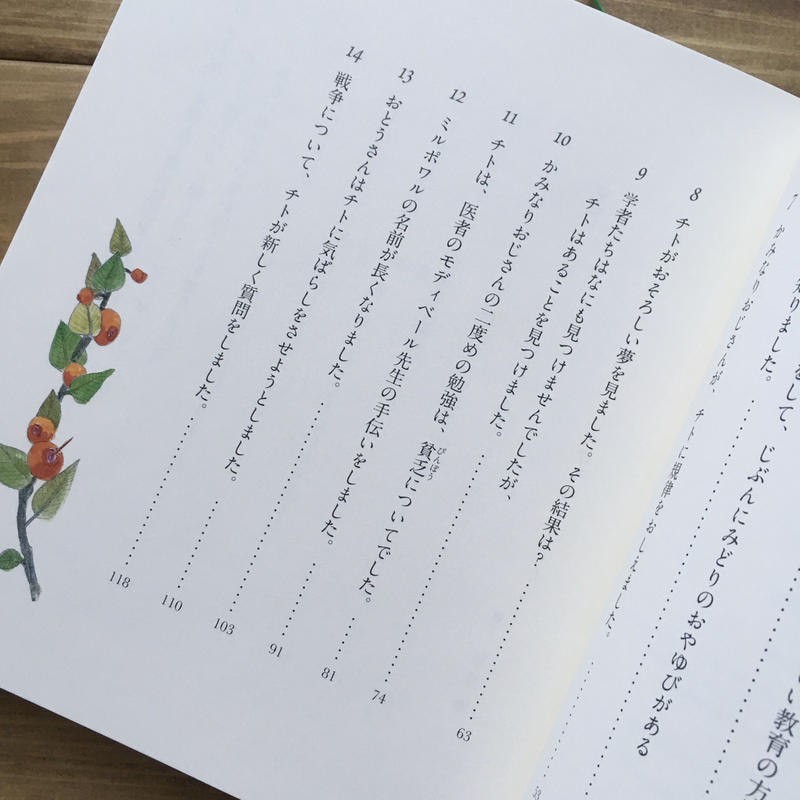 い教育の方
をして、じぶんにみどりのおやゆびがある
知りました。
7 かみなりおじさんが、チトに規律をおしえました。
8 チトがおそろしい夢を見ました。その結果は?……63
9 学者たちはなにも見つけませんでしたが、
チトはあることを見つけました。……74
10 かみなりおじさんの二度めの勉強は、貧乏(びんぼう)についてでした。……81
11 チトは、医者のモディベール先生の手伝いをしました。……91
12 ミルポワルの名前が長くなりました。……103
13 おとうさんはチトに気ばらしをさせようとしました。……110
14 戦争について、チトが新しく質問をしました。……118